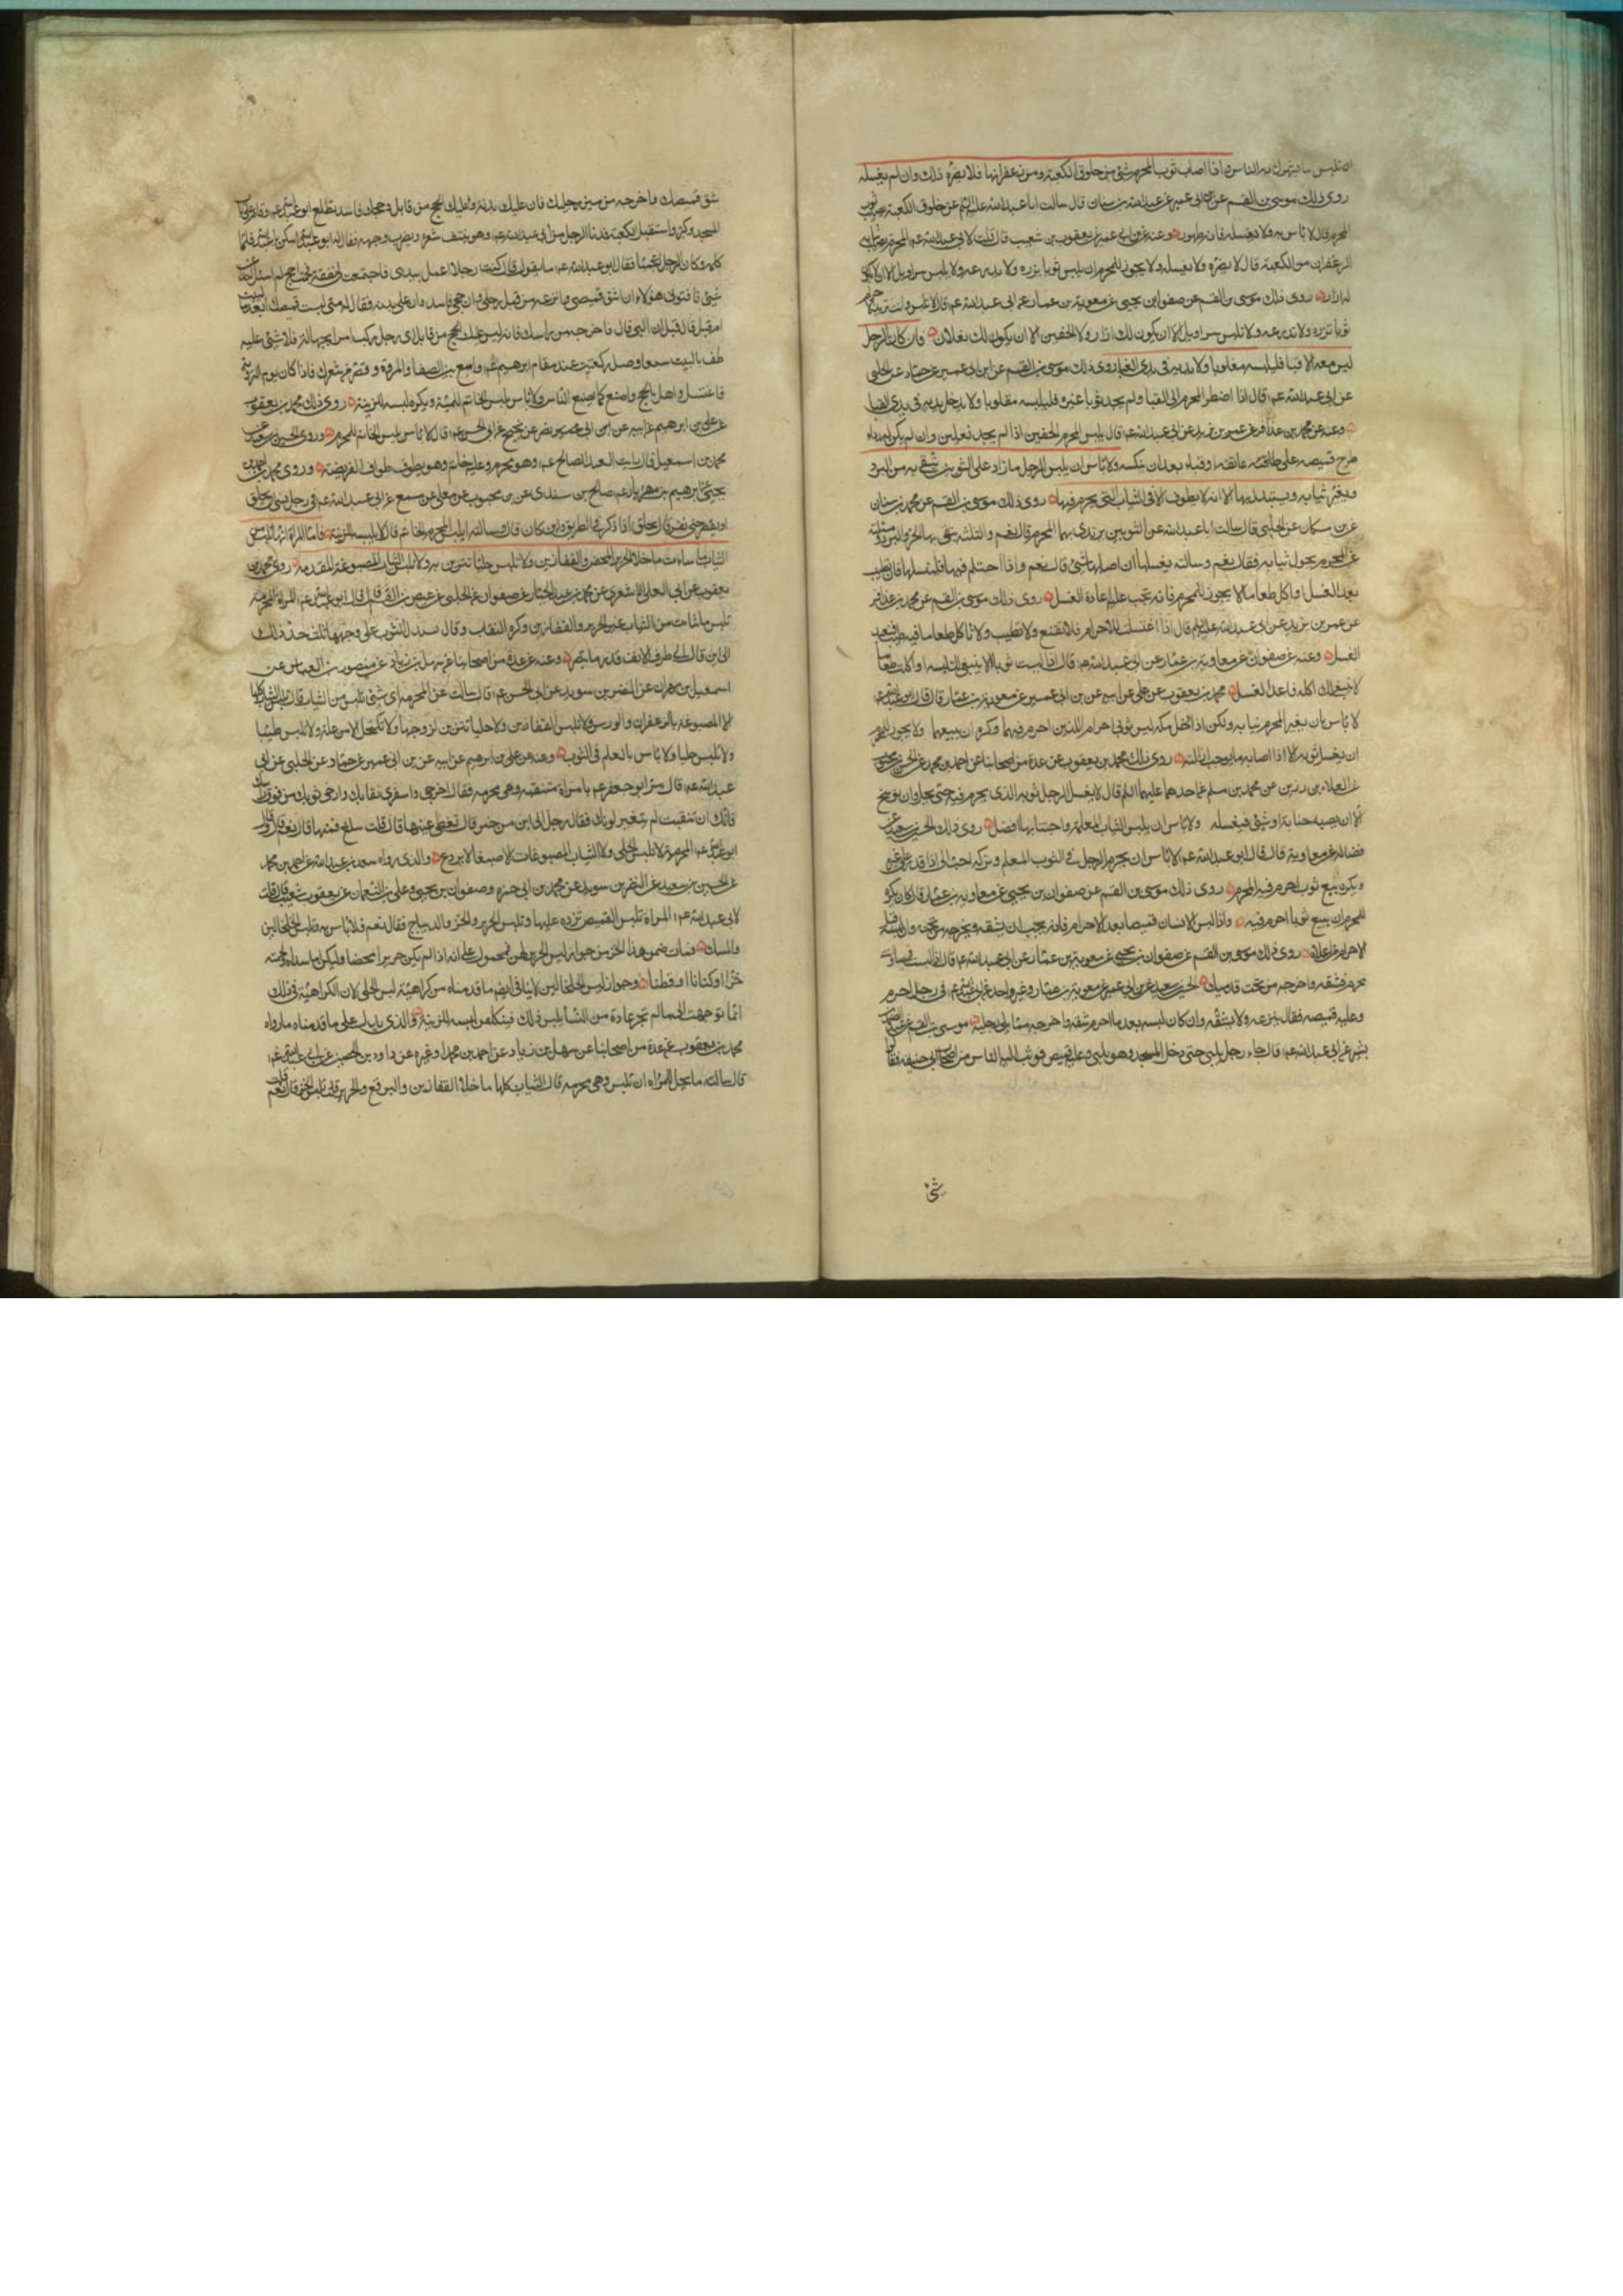 ان تلبس ما يتهرك به الناس واذا اصاب ثوب المحرم شئ من خلوق الكعبة ومن زعفرانها فلا يضره ذلك وان لم يغسله
روى ذلك موسى بن القسم عن ابن ابى عمير عن عبدالله بن سنان قال سالت اباعبدالله عليه السلم عن خلوق الكعبة يصيب ثوب
المحرم قال لا باس به ولا يغسله فانه طهور وعنه عن ابن ابى عمير عن يعقوب بن شعيب قال قلت لابى عبدالله عم المحرم يصيب ثيابه
الزعفران من الكعبة قال لا يضره ولا يغسله ولا يجوز للمحرم ان يلبس ثوبا يزره ولا يدرعه ولا يلبس سراويل الا ان لا يكون
له ازار روى ذلك موسى بن القسم عن صفوان بن يحيى عن معوية بن عمار عن ابى عبدالله عم قال لا تلبس وانت تريد الاحرام
ثوبا تزره ولا تدرعه ولا تلبس سراويل الا ان يكون لك ازار ولا الخفين الا ان يكون لك نعلان فان كان الرجل
ليس معه الا قبا فليلبسه مقلوبا ولا يدخل يديه فى يدى القبا روى ذلك موسى بن القسم عن ابن ابى عمير عن حماد عن الحلبى
عن ابى عبدالله عم قال اذا اضطر المحرم الى القبا ولم يجد ثوبا غيره فليلبسه مقلوبا ولا يدخل يديه فى يدى القبا
وعنه عن محمد بن عذافر عن عمر بن يزيد عن ابى عبدالله عم قال يلبس المحرم الخفين اذا لم يجد نعلين وان لم يكن له رداء
طرح قميصه على عاتقه او قباه بعد ان ينكسه ولا باس ان يلبس الرجل ما زاد على الثوبين يتقى به من البرد
ويغير ثيابه ويستبدل بها الا انه لا يطوف الا فى الثياب التى يحرم فيها روى ذلك موسى بن القسم عن محمد بن سنان
عن بن مسكان عن الحلبى قال سالت اباعبدالله عن الثوبين يرتدى بهما المحرم قال نعم والثلثه يتقى بها الحر والبرد وسالته
عن المحرم يحول ثيابه فقال نعم وسالته يغسلها ان اصابها شئ قال نعم واذا احتلم فيها فليغسلها فان تطيب
بعد الغسل او اكل طعاما لا يجوز للمحرم فانه يجب عليه اعادة الغسل روى ذلك موسى بن القسم عن محمد بن عذافر
عن عمر بن يزيد عن ابى عبدالله عليه السلم قال اذا اغتسلت للاحرام فلا تقنع ولا تطيب ولا تاكل طعاما فيه طيب فتعيد
الغسل وعنه عن صفوان عن معاوية بن عمار عن ابى عبدالله عم قال اذا لبست ثوبا لا ينبغى لك لبسه او اكلت طعاما
لا ينبغى لك اكله فاعد الغسل محمد بن يعقوب عن على عن ابيه عن بن ابى عمير عن معوية بن عمار قال قال ابو عبدالله عم
لا باس بان يغير المحرم ثيابه ولكن اذا دخل مكه لبس ثوبى احرامه اللذين احرم فيهما وكره ان يبيعهما ولا يجوز للمحرم
ان يغسل ثوبه الا اذا اصابه ما يوجب ازالته روى ذلك محمد بن يعقوب عن عدة من اصحابنا عن احمد بن محمد عن
عن العلاء بن رزين عن محمد بن مسلم عن احدهما عليهما السلم قال لا يغسل الرجل ثوبه الذى يحرم فيه حتى يحل وان توسخ
الا ان يصيبه جنابة او شئ فيغسله ولا باس ان يلبس الثياب المعلمة واجتنابها افضل روى ذلك الحسين بن سعيد عن
فضاله عن معاوية قال قال ابو عبدالله عم لا باس ان يحرم الرجل فى الثوب المعلم وتركه احب الى اذا قدر على غيره
ويكره بيع ثوب احرم فيه المحرم روى ذلك موسى بن القسم عن صفوان بن يحيى عن معاوية بن عمار قال كان يكره
للمحرم ان يبيع ثوبا احرم فيه واذا لبس الانسان قميصا بعد الاحرام فانه يجب ان يشقه ويخرجه من تحت وان لبسه قبل
الاحرام نزعه من اعلاه روى ذلك موسى بن القسم عن صفوان بن يحيى عن معوية بن عمار عن ابى عبدالله عم قال اذا لبست قميصا وانت
محرم فشقه واخرجه من تحت قدميك الحسين بن سعيد عن ابن ابى عمير عن معوية بن عمار وغير واحد عن ابى عبدالله عم فى رجل احرم
وعليه قميصه فقال ينزعه ولا يشقه وان كان لبسه بعد ما احرم شقه واخرجه مما يلى رجليه موسى بن القسم عن عبد الصمد بن
بشير عن ابى عبدالله عم قال جاء رجل يلبى حتى دخل المسجد وهو يلبى وعليه قميص فوثب اليه الناس من اصحاب ابى حنيفه فقالوا
شق
شق قميصك فاخرجه من بين رجليك فان عليك بدنة وعليك الحج من قابل وحجك فاسد فطلع ابو عبدالله عم وقام على باب
المسجد وكبر واستقبل الكعبة فدنا الرجل من ابى عبدالله عم وهو ينتف شعره ويضرب وجهه فقال له ابو عبدالله اسكن يا عبدالله فلما
كلمه وكان الرجل اعجميا فقال ابو عبدالله عم ما يقول قال كنت رجلا اعمل بيدى فاجتمعت لى نفقة فجئت احج لم اسئل احدا عن
شئ فافتونى هؤلاء ان اشق قميصى وانزعه من قبل رجلى وان حجى فاسد وان على بدنه فقال له متى لبست قميصك ابعد ما لبيت
ام قبل قال قبل ان البى قال فاخرجه من راسك فانه ليس عليك بدنة وليس عليك الحج من قابل اى رجل ركب امرا بجهالة فلا شئ عليه
طف بالبيت سبعا وصل ركعتين عند مقام ابرهيم عم واسع بين الصفا والمروة وقصر من شعرك فاذا كان يوم التروية
فاغتسل واهل بالحج واصنع كما يصنع الناس ولا باس بلبس الخاتم للسنة ويكره لبسه للزينة روى ذلك محمد بن يعقوب
عن على بن ابرهيم عن ابيه عن ابن ابى نصر عن نجيح عن ابى الحسن عم قال لا باس بلبس الخاتم للمحرم وروى الحسين بن سعيد عن
محمد بن اسمعيل قال رايت العبد الصالح عم وهو محرم وعليه خاتم وهو يطوف طواف الفريضة وروى محمد بن احمد بن
يحيى عن ابرهيم بن مهزيار عن صالح بن سندى عن بن محبوب عن على عن مسمع عن ابى عبدالله عم فى رجل نسى ان يحلق
او يقصر حتى نفر قال يحلق اذا ذكر فى الطريق واين كان قال وسالته ايلبس المحرم الخاتم قال لا يلبسه للزينة فاما المراة فانها تلبس من
الثياب ما شاءت ما خلا الحرير المحض والقفازين ولا تلبس حليا تتزين به ولا تلبس الثياب المصبوغة المفدمه روى محمد بن
يعقوب عن ابى على الاشعرى عن محمد بن عبد الجبار عن صفوان عن الحلبى عن عيص بن القسم قال قال ابو عبدالله عم المراة المحرمة
تلبس ما شاءت من الثياب غير الحرير والقفازين وكره النقاب وقال تسدل الثوب على وجهها قلت حد ذلك
الى اين قال الى طرف الانف قدر ما تبصر وعنه عن عدة من اصحابنا عن سهل بن زياد عن منصور بن العباس عن
اسمعيل بن مهران عن النضر بن سويد عن ابى الحسن عم قال سالت عن المحرمة اى شئ تلبس من الثياب قال تلبس الثياب كلها
الا المصبوغة بالزعفران والورس ولا تلبس القفازين ولا حليا تتزين لزوجها ولا تكتحل الا من علة ولا تمس طيبا
ولا تلبس حليا ولا باس بالعلم فى الثوب وعنه عن على بن ابرهيم عن ابيه عن بن ابى عمير عن حماد عن الحلبى عن ابى
عبدالله عم قال مر ابو جعفر عم بامراة متنقبة وهى محرمه فقال احرمى واسفرى وارخى ثوبك من فوق راسك
فانك ان تنقبت لم يتغير لونك فقال رجل الى اين ترخيه قال تغطى عينيها قال قلت تبلغ فمها قال نعم قال وقال
ابو عبدالله عم المحرمة لا تلبس الحلى ولا الثياب المصبوغات الا صبغا لا يردع والذى رواه سعد بن عبدالله عن احمد بن محمد
عن الحسين بن سعيد عن النضر بن سويد عن محمد بن ابى حمزه وصفوان بن يحيى وعلى بن النعمان عن يعقوب بن شعيب قال قلت
لابى عبدالله عم المراة تلبس القميص تزره عليها وتلبس الحرير والخز والديباج فقال نعم فلا باس به وتلبس الخلخالين
والمسك فما تضمن هذا الخبر من جواز لبس الحرير لهن فمحمول على انه اذا لم يكن حريرا محضا وليكن اما سداه او لحمته
خزا او كتانا او قطنا وجواز لبس الخلخالين لا ينافى ايضا ما قدمناه من كراهية لبس الحلى لان الكراهية فى ذلك
انما توجهت الى ما لم تجر عادة من النسا بلبس ذلك فيتكلفن لبسه للزينة والذى يدل على ما قدمناه ما رواه
محمد بن يعقوب عن عدة من اصحابنا عن سهل بن زياد عن احمد بن محمد او غيره عن داود بن الحصين عن ابى عيينه عن
قال سالته ما يحل للمراة ان تلبس وهى محرمه قال الثياب كلها ما خلا القفازين والبرقع والحرير قلت تلبس الخز قال نعم قلت